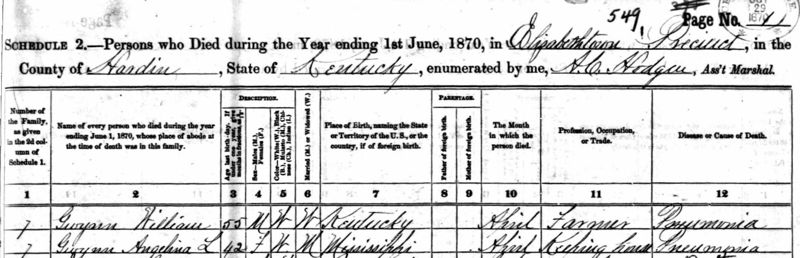 549
Page No. 1
SCHEDULE 2.—Persons who Died during the Year ending 1st June, 1870, in Elizabethtown Precinct, in the
County of Hardin, State of Kentucky, enumerated by me, A. C. Hodgen, Ass't Marshal.
DESCRIPTION. PARENTAGE.
Number of the Family, as given in the 2d column of Schedule 1.
Name of every person who died during the year ending June 1, 1870, whose place of abode at the time of death was in this family.
Age last birth-day. If under one year, give months in fractions, as
Sex—Males (M.), Females (F.).
Color—White (W.), Black (B.), Mulatto (M.), Chinese (Ch.), Indian (I.)
Married (M.) or Widowed (W.)
Place of Birth, naming the State or Territory of the U.S., or the country, if of foreign birth.
Father of foreign birth.
Mother of foreign birth.
The Month in which the person died.
Profession, Occupation, or Trade.
Disease or Cause of Death.
1 2 3 4 5 6 7 8 9 10 11 12
7 Gwynn William 55 M W W Kentucky April Farmer Pneumonia
7 Gwynn Angelina L 42 F W M Mississippi April Keeping house Pneumonia